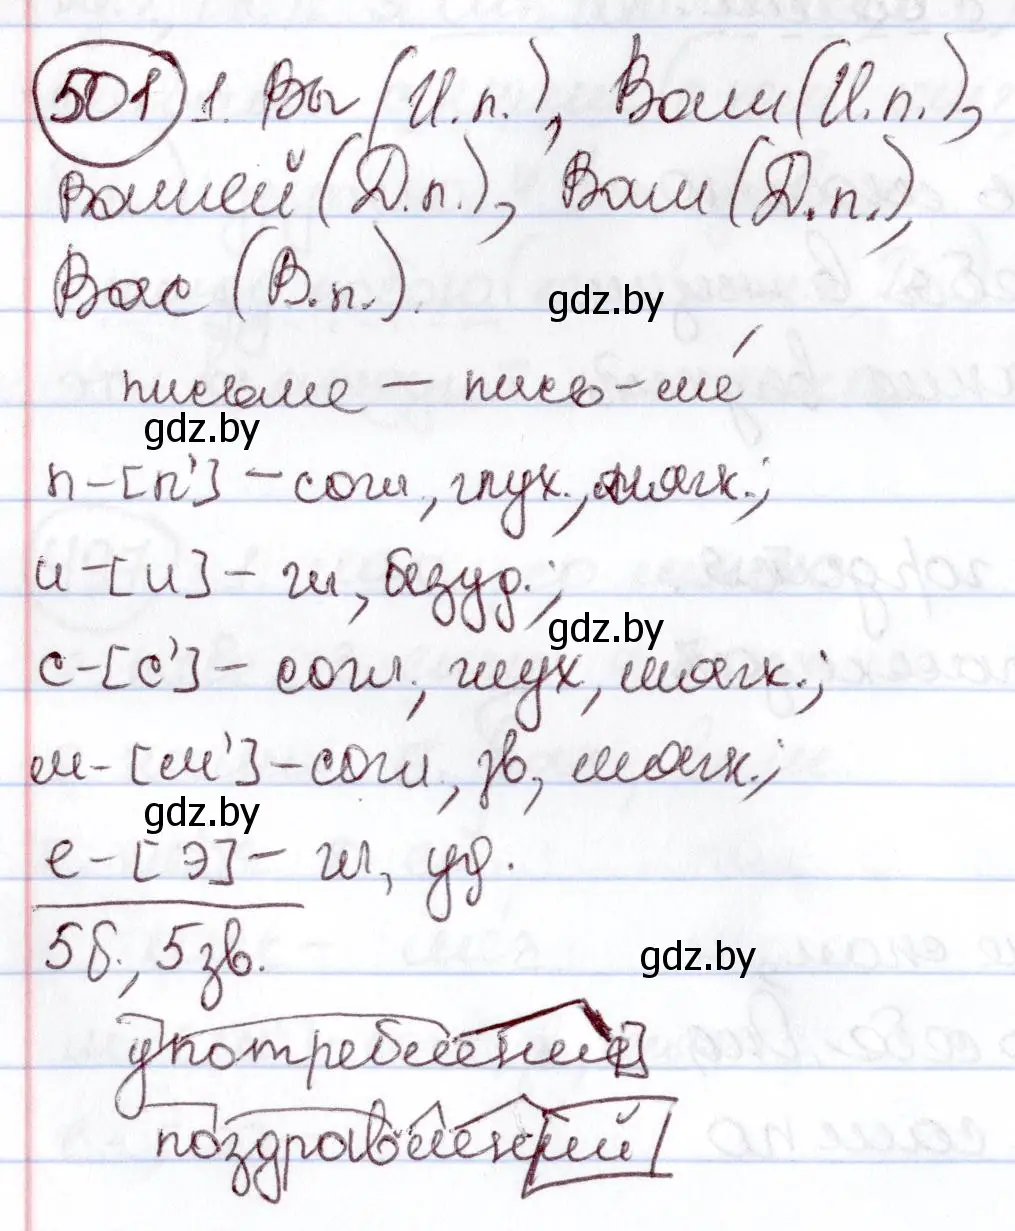 501 1. Вы (И.п.), Вам (И.п.),
Вашей (Д.п.), Вам (Д.п.),
Вас (В.п.).
gdz.by
письме – пись-ме́
gdz.by
п-[п'] – согл., глух., мягк.;
и-[и] – гл, безуд.;
gdz.by
с-[с'] – согл., глух, мягк.;
м-[м'] – согл., зв., мягк.;
gdz.by
е-[э] – гл, уд.
5б., 5зв.
gdz.by
употребление
поздравлений